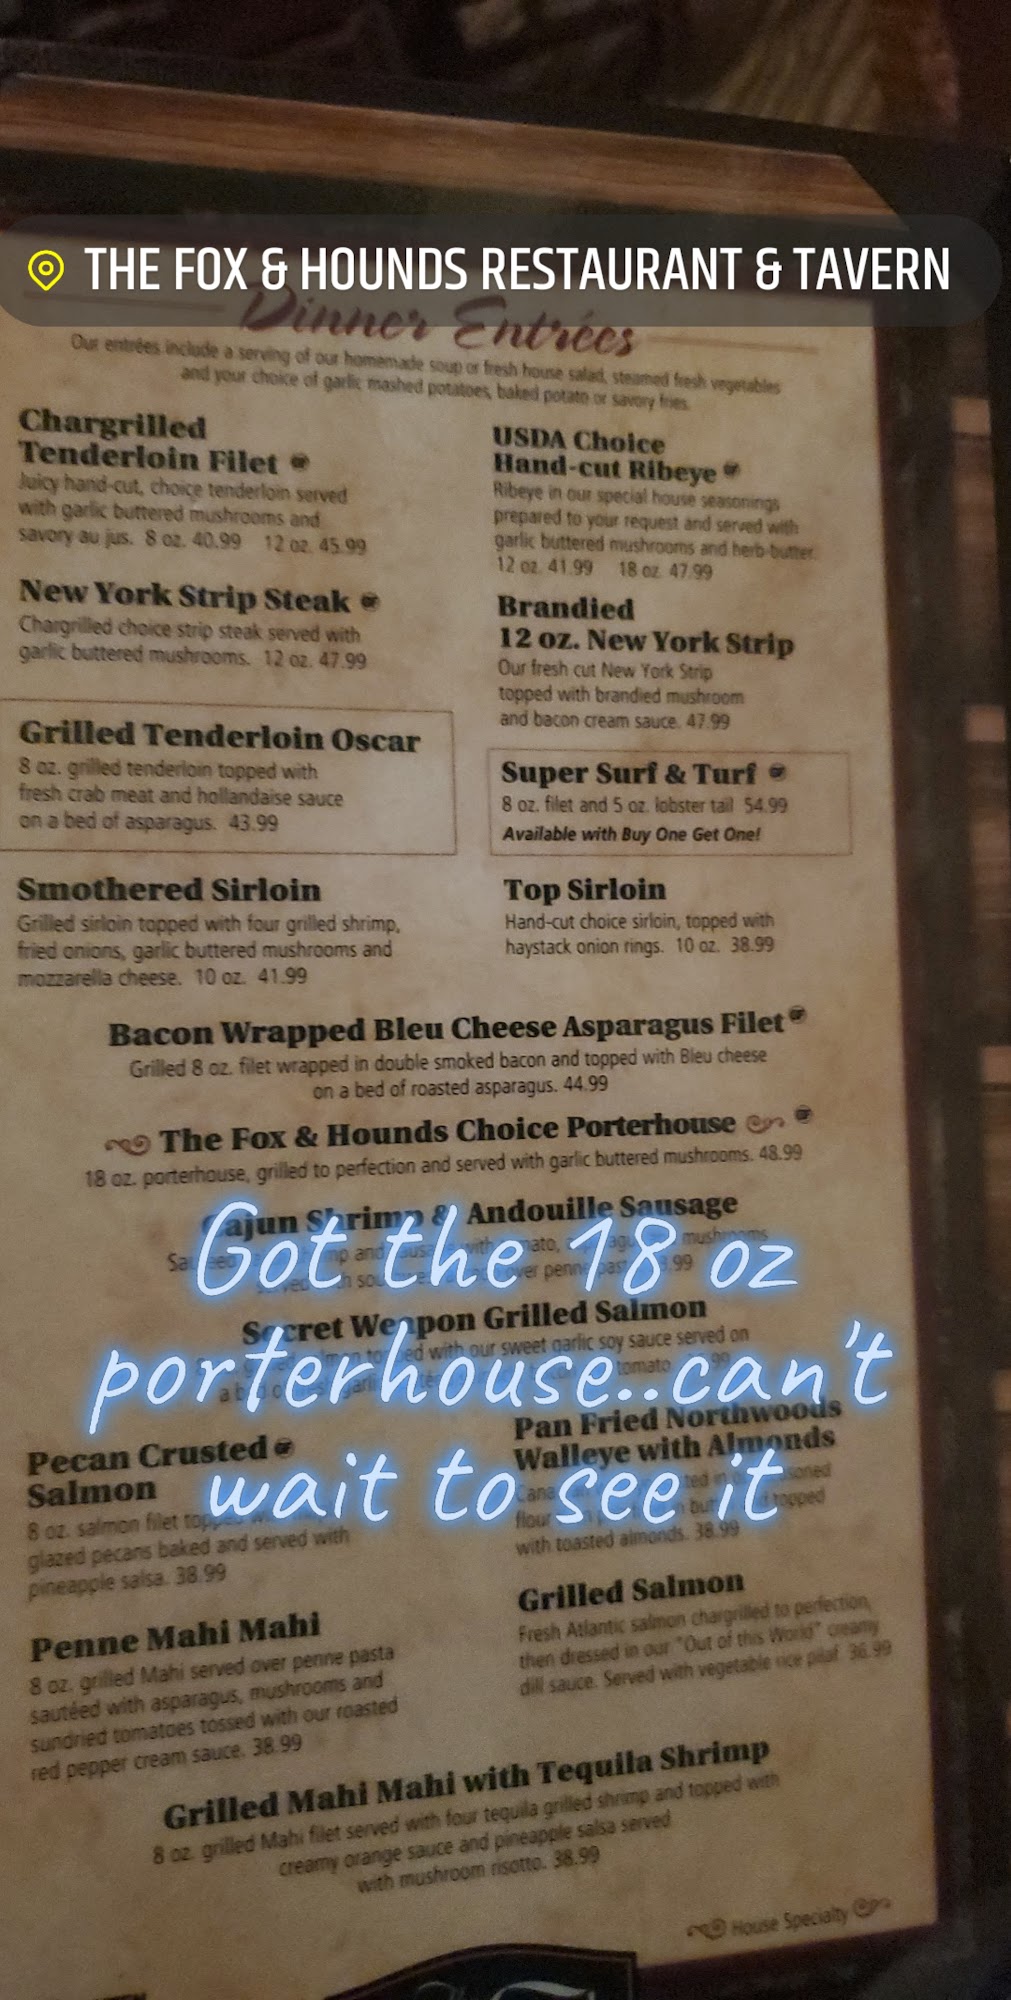 THE FOX & HOUNDS RESTAURANT & TAVERN
Dinner Entrées
Our entrées include a serving of our homemade soup or fresh house salad, steamed fresh vegetables
and your choice of garlic mashed potatoes, baked potato or savory fries.
Chargrilled
Tenderloin Filet
Juicy hand-cut, choice tenderloin served
with garlic buttered mushrooms and
savory au jus. 8 oz. 40.99 12 oz. 45.99
New York Strip Steak
Chargrilled choice strip steak served with
garlic buttered mushrooms. 12 oz. 47.99
Grilled Tenderloin Oscar
8 oz. grilled tenderloin topped with
fresh crab meat and hollandaise sauce
on a bed of asparagus. 43.99
Smothered Sirloin
Grilled sirloin topped with four grilled shrimp,
fried onions, garlic buttered mushrooms and
mozzarella cheese. 10 oz. 41.99
USDA Choice
Hand-cut Ribeye
Ribeye in our special house seasonings
prepared to your request and served with
garlic buttered mushrooms and herb-butter.
12 oz. 41.99 18 oz. 47.99
Brandied
12 oz. New York Strip
Our fresh cut New York Strip
topped with brandied mushroom
and bacon cream sauce. 47.99
Super Surf & Turf
8 oz. filet and 5 oz. lobster tail 54.99
Available with Buy One Get One!
Top Sirloin
Hand-cut choice sirloin, topped with
haystack onion rings. 10 oz. 38.99
Bacon Wrapped Bleu Cheese Asparagus Filet
Grilled 8 oz. filet wrapped in double smoked bacon and topped with Bleu cheese
on a bed of roasted asparagus. 44.99
The Fox & Hounds Choice Porterhouse
18 oz. porterhouse, grilled to perfection and served with garlic buttered mushrooms. 48.99
Cajun Shrimp & Andouille Sausage
mushrooms
over penne
Got the 18 oz
Secret Weapon Grilled Salmon
with our sweet garlic soy sauce served on
tomato
porterhouse..can't
wait to see it
Pecan Crusted
Salmon
8 oz. salmon filet topped
glazed pecans baked and served with
pineapple salsa. 38.99
Pan Fried Northwoods
Walleye with Almonds
flour topped
with toasted almonds. 38.99
Penne Mahi Mahi
8 oz. grilled Mahi served over penne pasta
sautéed with asparagus, mushrooms and
sundried tomatoes tossed with our roasted
red pepper cream sauce. 38.99
Grilled Salmon
Fresh Atlantic salmon chargrilled to perfection,
then dressed in our "Out of this World" creamy
dill sauce. Served with vegetable rice pilaf. 36.99
Grilled Mahi Mahi with Tequila Shrimp
8 oz. grilled Mahi filet served with four tequila grilled shrimp and topped with
creamy orange sauce and pineapple salsa served
with mushroom risotto. 38.99
House Specialty